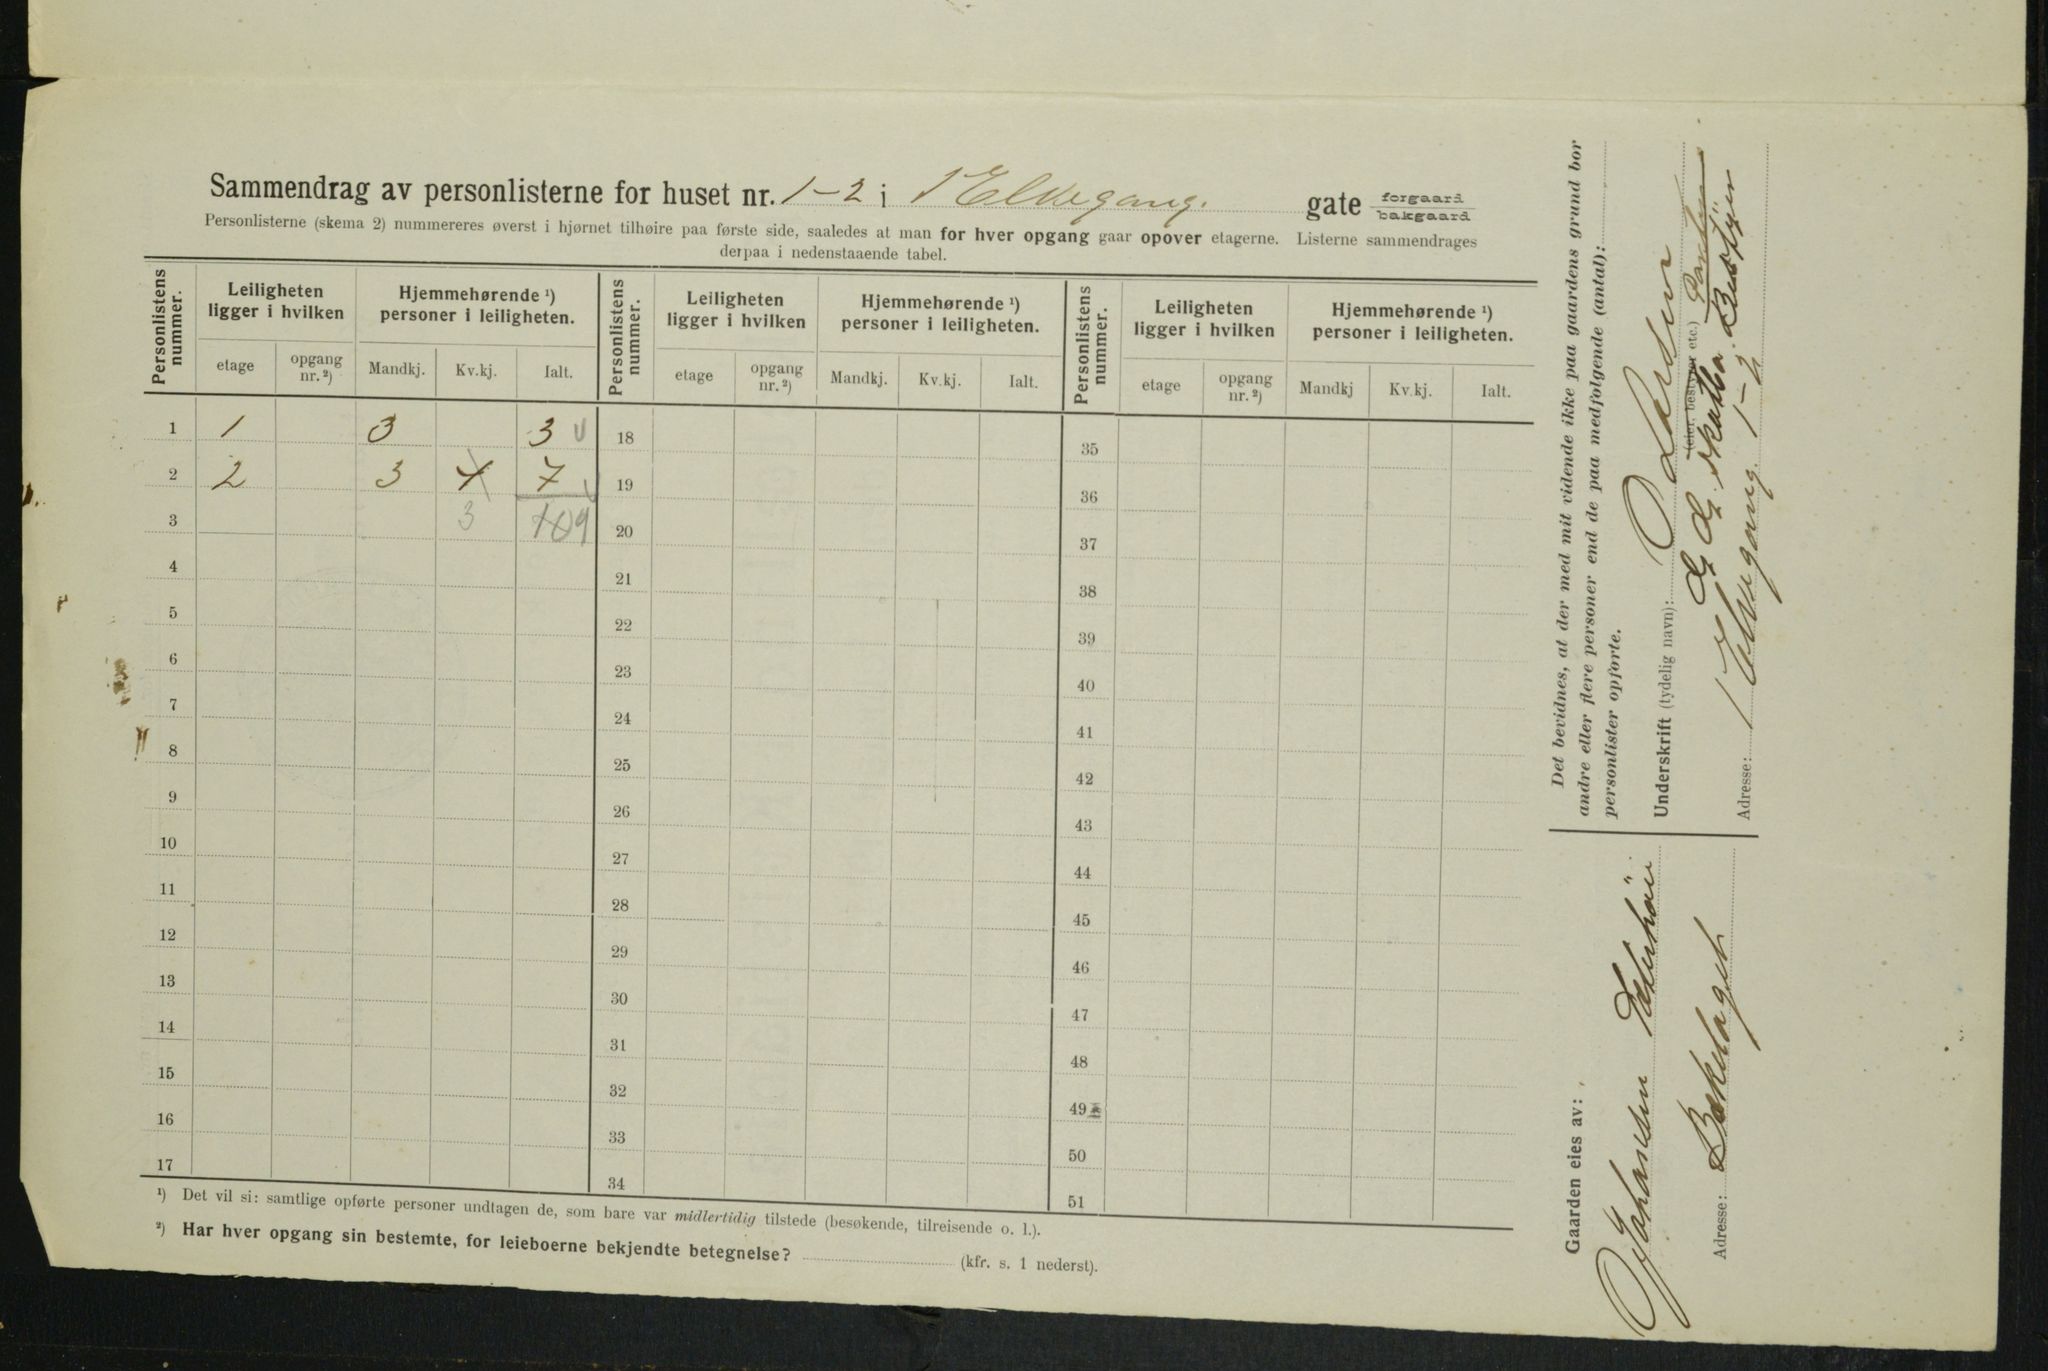 Sammendrag av personlisterne for huset nr. 1-2 i 1 Elvegang. gate forgaard bakgaard
Personlisterne (skema 2) nummereres øverst i hjørnet tilhøire paa første side, saaledes at man for hver opgang gaar opover etagerne. Listerne sammendrages
derpaa i nedenstaaende tabel.
Personlistens nummer. Leiligheten ligger i hvilken Hjemmehørende ¹) personer i leiligheten. Personlistens nummer. Leiligheten ligger i hvilken Hjemmehørende ¹) personer i leiligheten. Personlistens nummer. Leiligheten ligger i hvilken Hjemmehørende ¹) personer i leiligheten.
etage opgang nr. ²) Mandkj. Kv.kj. Ialt. etage opgang nr. ²) Mandkj. Kv.kj. Ialt. etage opgang nr. ²) Mandkj Kv.kj. Ialt.
1 1 3 3 18 35
2 2 3 4 7 19 36
3 3 10 9 20 37
4 21 38
5 22 39
6 23 40
7 24 41
8 25 42
9 26 43
10 27 44
11 28 45
12 29 46
13 30 47
14 31 48
15 32 49
16 33 50
17 34 51
¹) Det vil si: samtlige opførte personer undtagen de, som bare var midlertidig tilstede (besøkende, tilreisende o. l.).
²) Har hver opgang sin bestemte, for leieboerne bekjendte betegnelse? (kfr. s. 1 nederst).
Det bevidnes, at der med mit vidende ikke paa gaardens grund bor
andre eller flere personer end de paa medfølgende (antal):
personlister opførte.
Underskrift (tydelig navn):
(eier, bestyrer etc.)
Bestyr
Adresse: 1 Elvegang. 1-2
Gaarden eies av:
Johansen
Adresse: Bækelaget